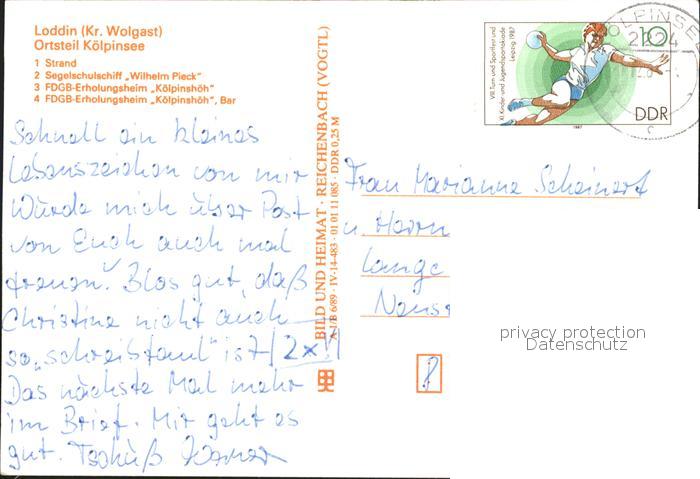 Loddin (Kr. Wolgast)
Ortsteil Kölpinsee
1 Strand
2 Segelschulschiff „Wilhelm Pieck“
3 FDGB-Erholungsheim „Kölpinshöh“
4 FDGB-Erholungsheim „Kölpinshöh“, Bar
Schnell ein kleines
Lebenszeichen von mir
Würde mich über Post
von Euch auch mal
freuen. Blos gut, daß
Christine nicht auch
so „schreibfaul“ ist! (2x!)
Das nächste Mal mehr
im Brief. Mir geht es
gut. Tschüß
BILD UND HEIMAT · REICHENBACH (VOGTL)
A 1/B 6/89 · IV-14-483 · 01 01 11 085 · DDR 0,25 M
VIII. Turn- und Sportfest und
XI. Kinder- und Jugendspartakiade
Leipzig 1987
10
DDR
1987
KÖLPINSEE
2224
c
Frau Marianne Scheinert
u. Herrn
Lange
privacy protection
Datenschutz